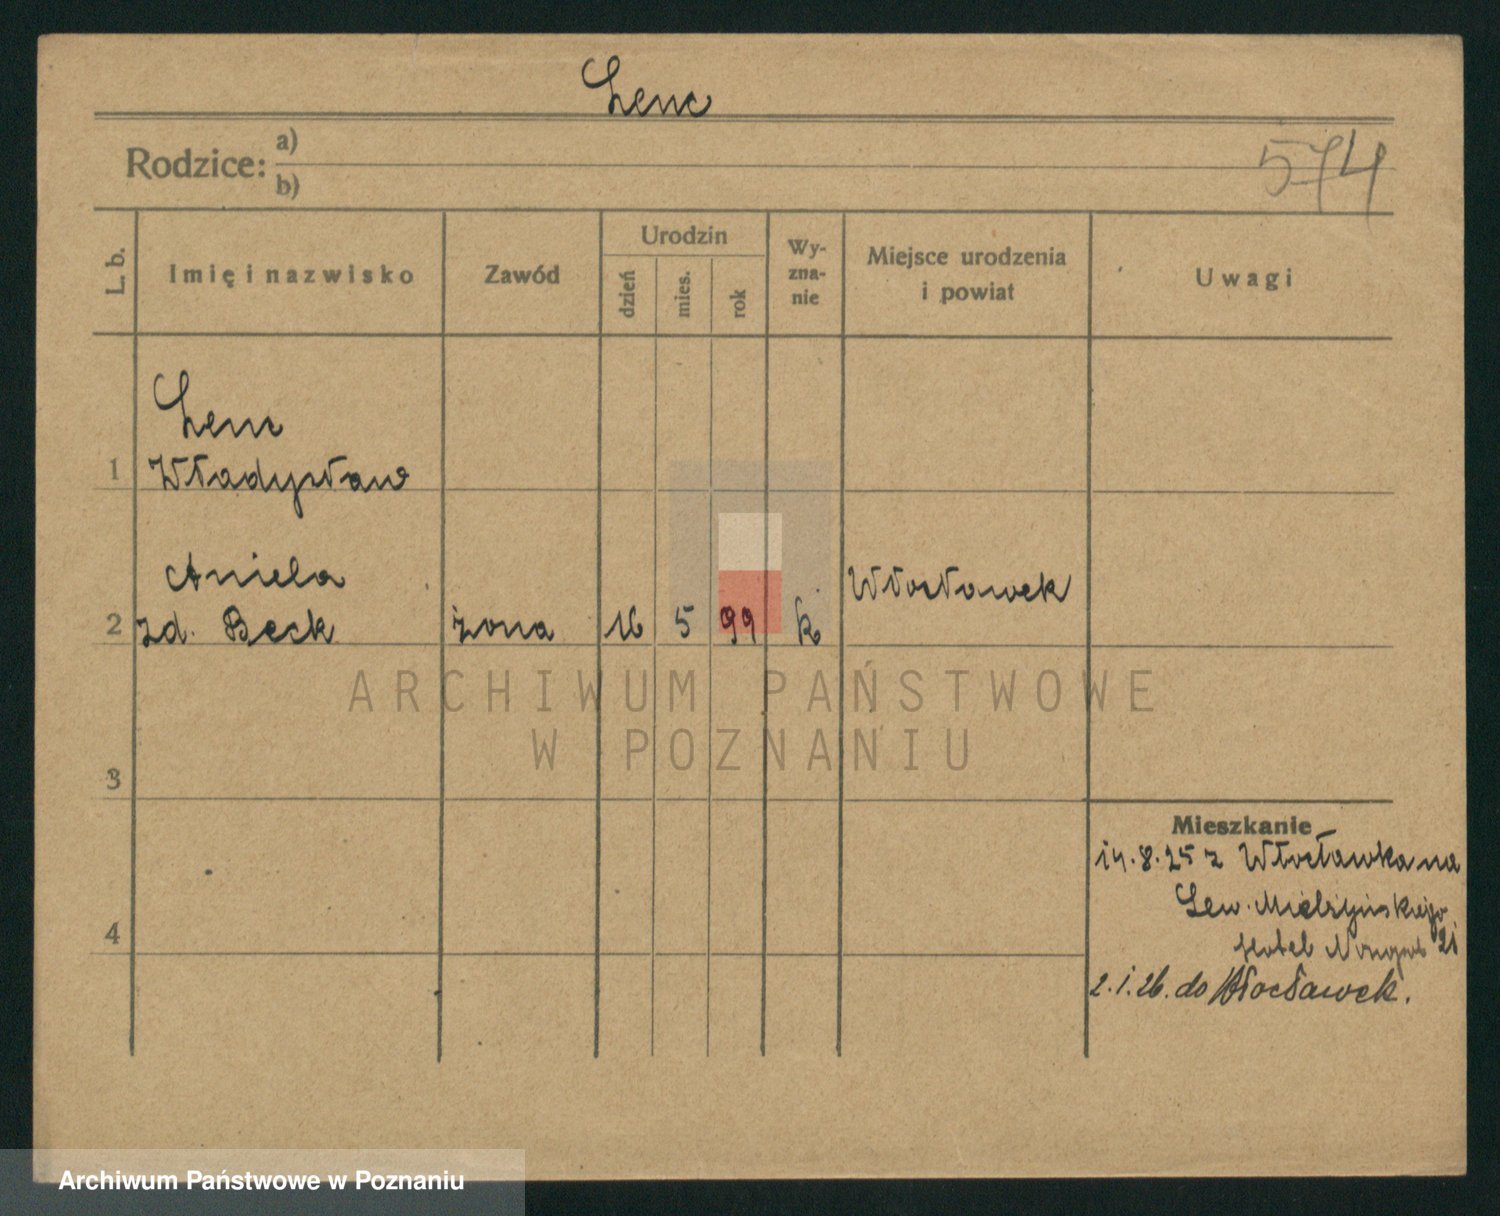 Lenc
Rodzice: a)
b)
574
L. b.
Imię i nazwisko
Zawód
Urodzin
dzień
mies.
rok
Wy-
zna-
nie
Miejsce urodzenia
i powiat
Uwagi
Lenc
1 Władysław
Aniela
2 zd. Beck żona 16 5 99 k Włocławek
ARCHIWUM PAŃSTWOWE
W POZNANIU
3
Mieszkanie
14.8.25 z Włocławka na
Sew. Mielżyńskiego
4
Hotel 21
2.1.26. do Włocławek.
Archiwum Państwowe w Poznaniu